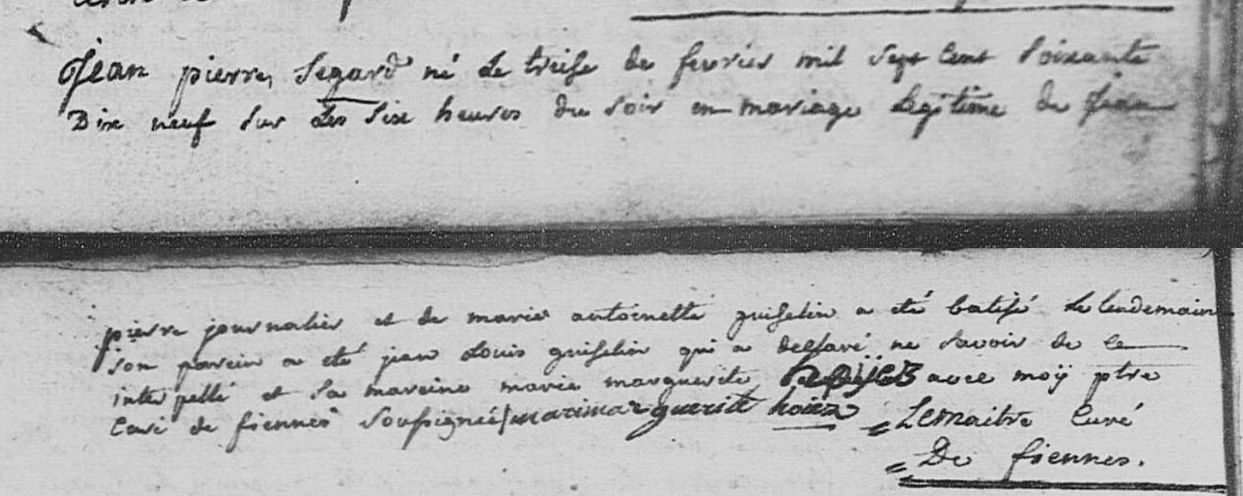 jean pierre Segard né Le treise de fevrier mil Sept Cent Soixante
Dix neuf Sur Les Six heures du Soir en mariage Legitime de jean
pierre journalier et de marie antoinette guiselin a eté batisé Le lendemain
Son parein a eté jean Louis guiselin qui a declaré ne Savoir de ce
interpellé et Sa mareine marie marguerite avec moÿ ptre
Curé de fiennes Soussigné marimarguerite hoiez Lemaitre Curé
De fiennes.